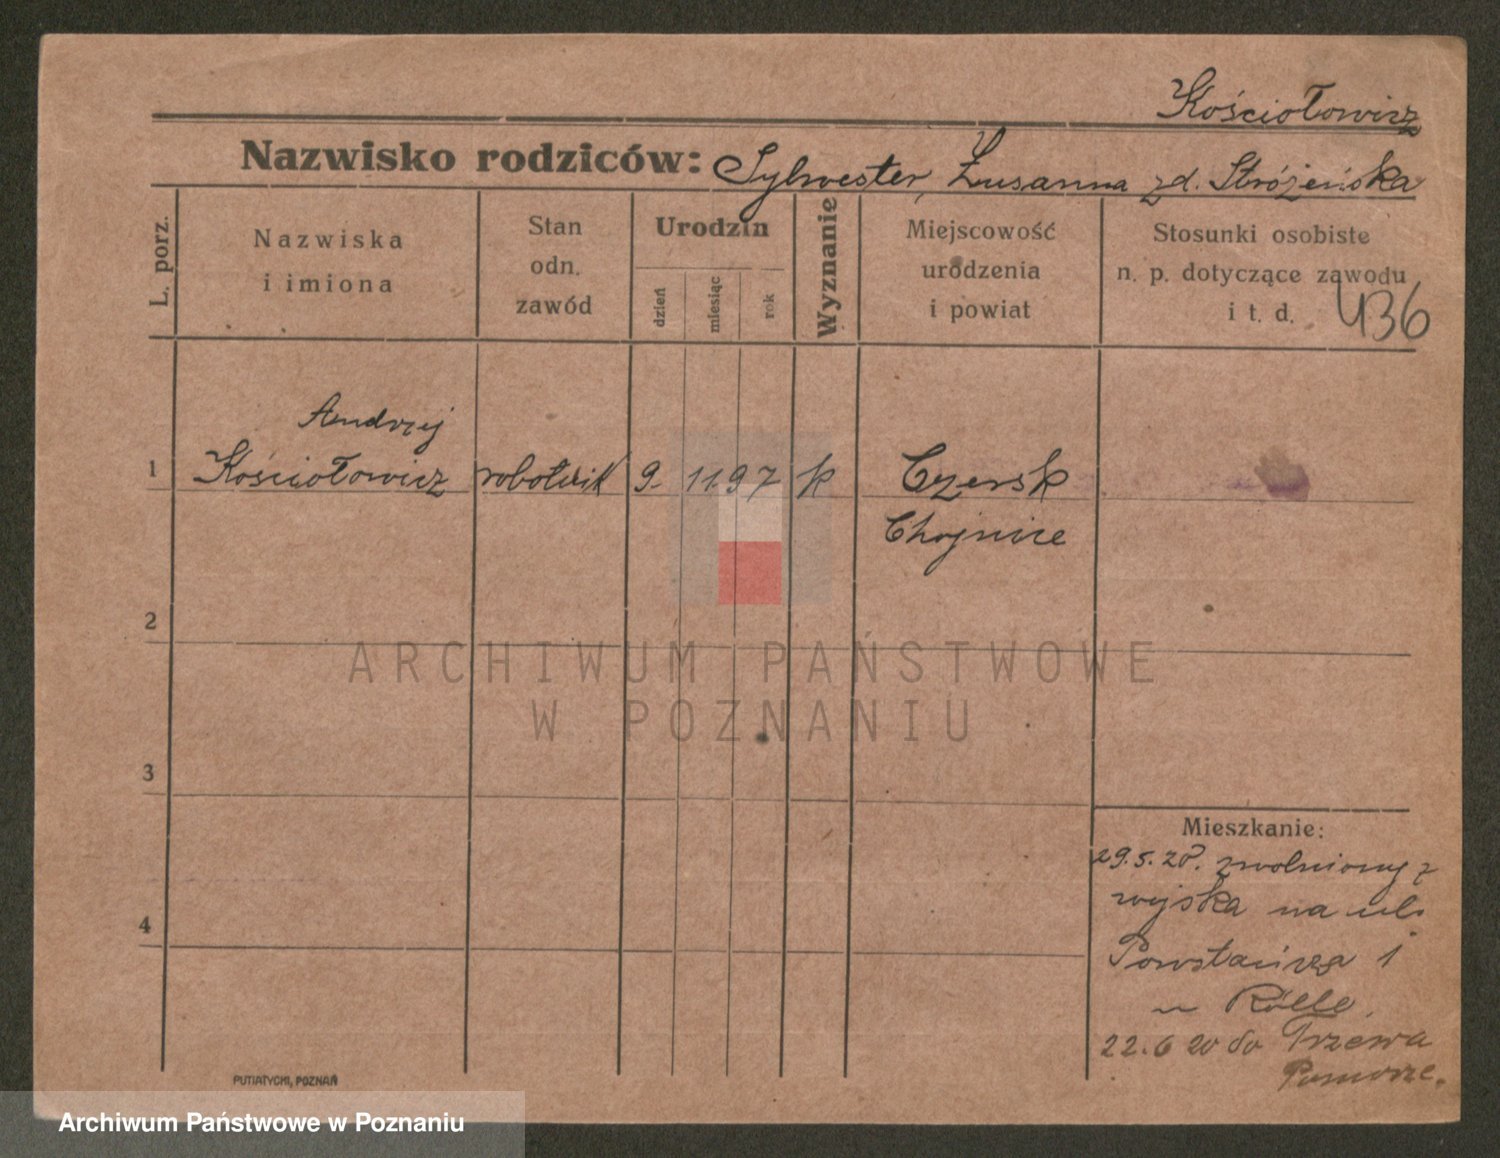 Kościołowicz
Nazwisko rodziców: Sylwester, Zusanna zd. Stróżeńska
L. porz.
Nazwiska
i imiona
Stan
odn.
zawód
Urodzin
dzień
miesiąc
rok
Wyznanie
Miejscowość
urodzenia
i powiat
Stosunki osobiste
n. p. dotyczące zawodu
i t. d.
436
Andrzej
1 Kościołowicz robotnik 9. 11. 97 k Czersk
Chojnice
2
ARCHIWUM PAŃSTWOWE
W POZNANIU
3
Mieszkanie:
29.5.20. zwolniony z
wojska na ul.
4
Powstańcza 1
22.6 20 do
Pomorze.
PUTIATYCKI, POZNAŃ
Archiwum Państwowe w Poznaniu